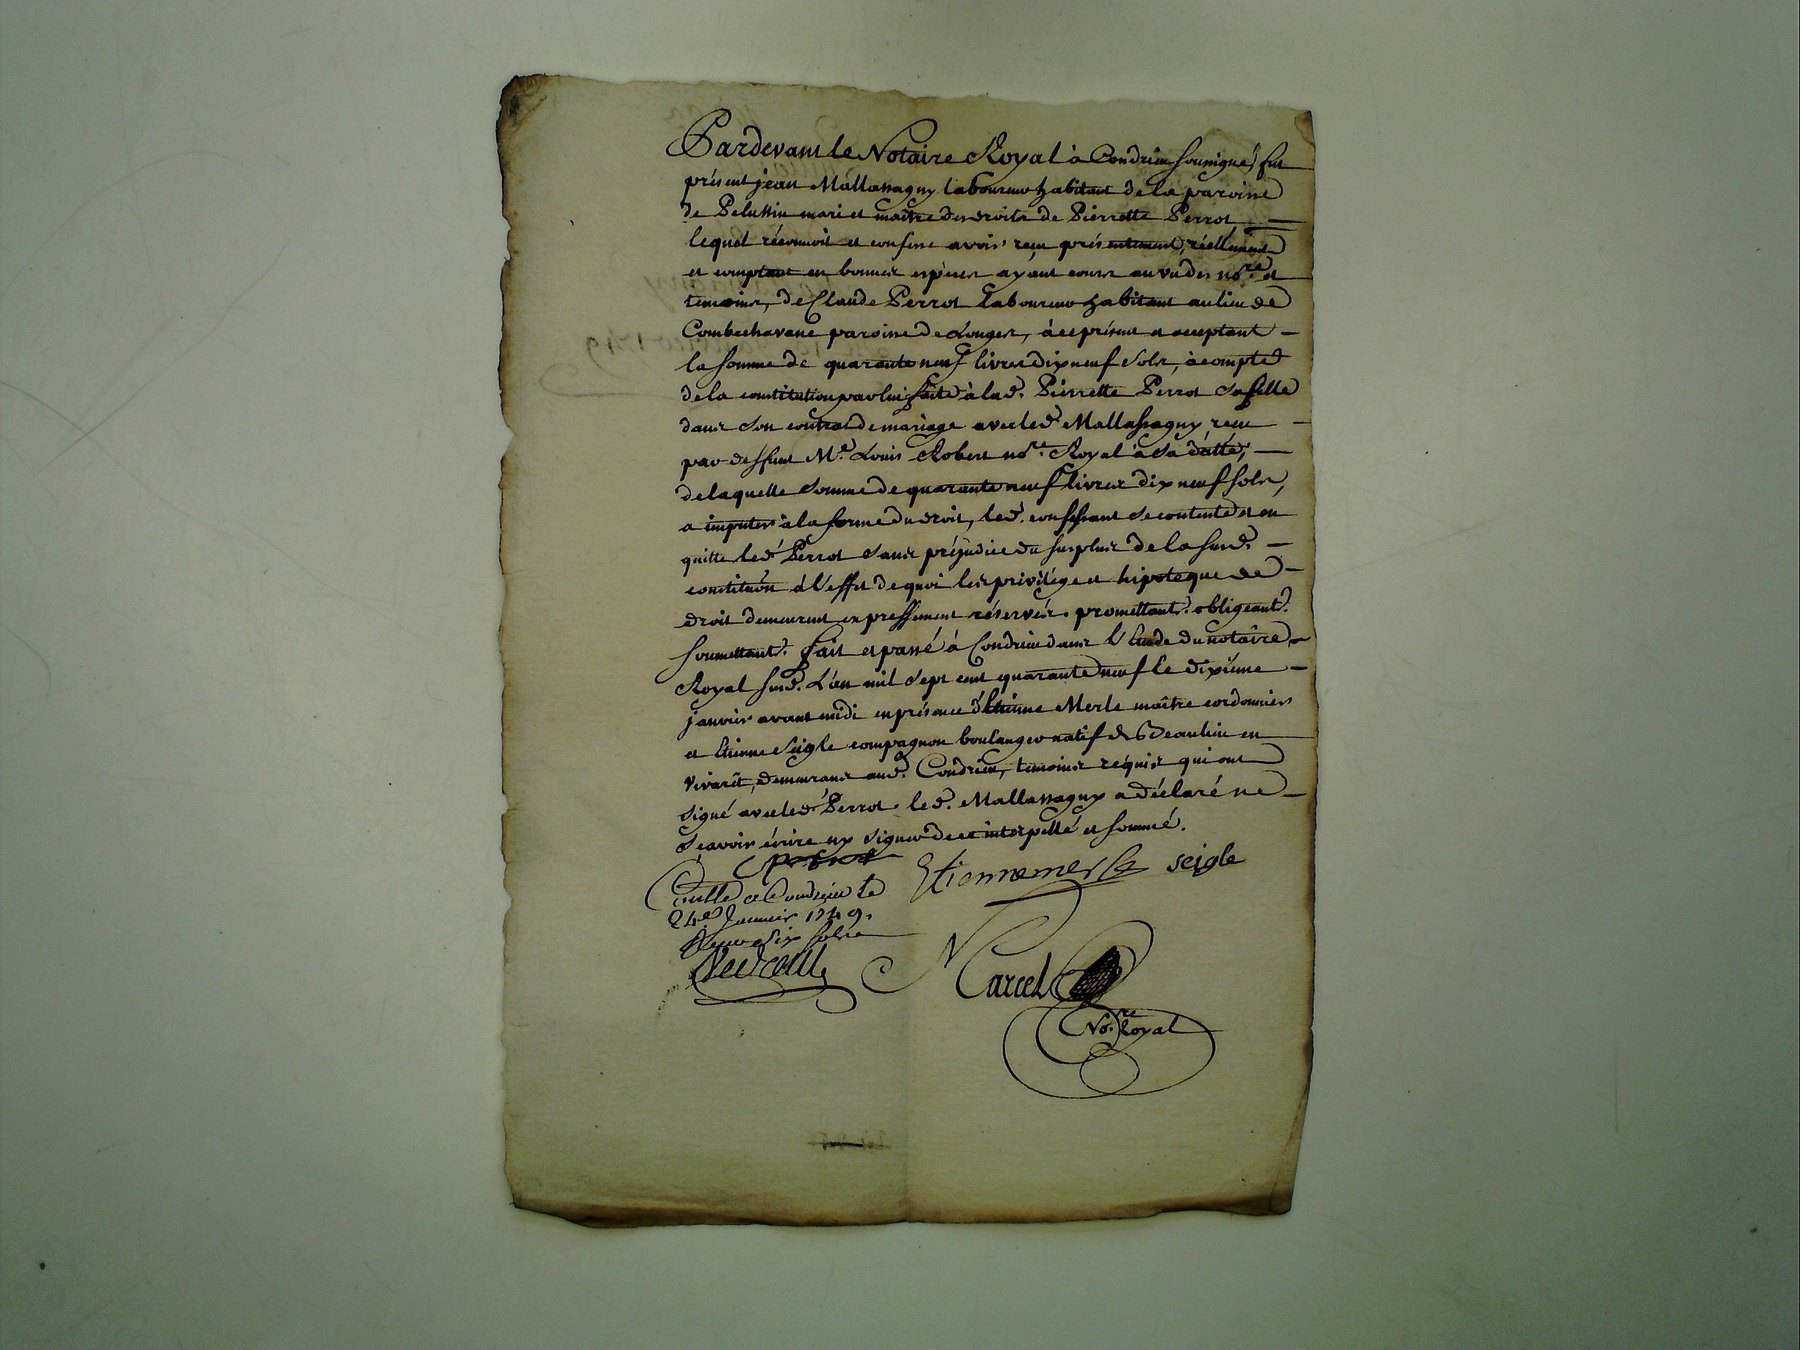 Pardevant le Notaire Royal à Condrieu soussigné, fut
présent jean Mallassagny laboureur habitant de la paroisse
de Pelussin mari et maître des droits de Pierrette Perrot
lequel réconnoit et confesse avoir reçu présentement, réellement
et comptant en bonnes espèces ayant cours au vu des no.re et
temoins, de Claude Perrot laboureur habitant au lieu de
Combechavane paroisse de Longes, à ce présent et acceptant
la somme de quarante neuf livres dix neuf sols, à compte
de la constitution par lui faite à lad. Pierrette Perrot sa fille
dans son contrat de mariage avec led. Mallassagny reçu
par deffunt M.e Louis Robert no.re Royal à sa datte,
de laquelle somme de quarante neuf livres dix neuf sols,
a imputer à la forme du droit, led. confessant se contente et en
quitte led. Perrot sans préjudice du surplus de la susd.
constituon à l'effet de quoi les privilége et hipoteque de
droit demeurent expressément réservés. promettant. obligeant.
soumettant. fait et passé à Condrieu dans l'Etude du notaire
Royal susd. L'an mil sept cent quarante neuf le dixième
janvier avant midi en présence d'Etienne Merle maître cordonnier
et Etienne Seigle compagnon boulanger natif de Beaulieu en
vivarêt, demeurans aud. Condrieu, temoins réquis qui ont
signé avec led. Perrot. led. Mallassagny a déclaré ne
sçavoir écrire ny signer de ce interpellé et sommé.
perrot Etienne merle seigle
Conllé a Condrieu le
24e Janvier 1749.
Reçu dix sols
Marcel
No.re Royal